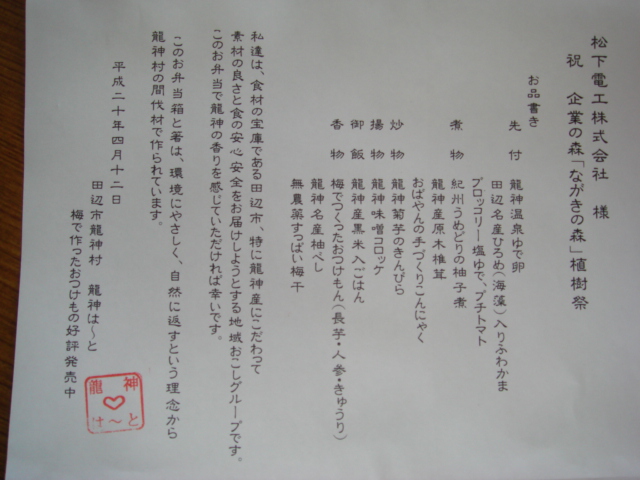 松下電工株式会社　様
祝　企業の森「ながきの森」植樹祭
お品書き
先　付　龍神温泉ゆで卵
田辺名産ひろめ(海藻)入りふわかま
ブロッコリー塩ゆで、プチトマト
煮　物　紀州うめどりの柚子煮
龍神産原木椎茸
おばやんの手づくりこんにゃく
炒　物　龍神菊芋のきんぴら
揚　物　龍神味噌コロッケ
御　飯　龍神産黒米入ごはん
香　物　梅でつくったおつけもん(長芋・人参・きゅうり)
龍神名産柚べし
無農薬すっぱい梅干
私達は、食材の宝庫である田辺市、特に龍神産にこだわって
素材の良さと食の安心安全をお届けしようとする地域おこしグループです。
このお弁当で龍神の香りを感じていただければ幸いです。
このお弁当箱と箸は、環境にやさしく、自然に返すという理念から
龍神村の間伐材で作られています。
平成二十年四月十二日
田辺市龍神村　龍神は～と
梅で作ったおつけもの好評発売中
龍神
は～と